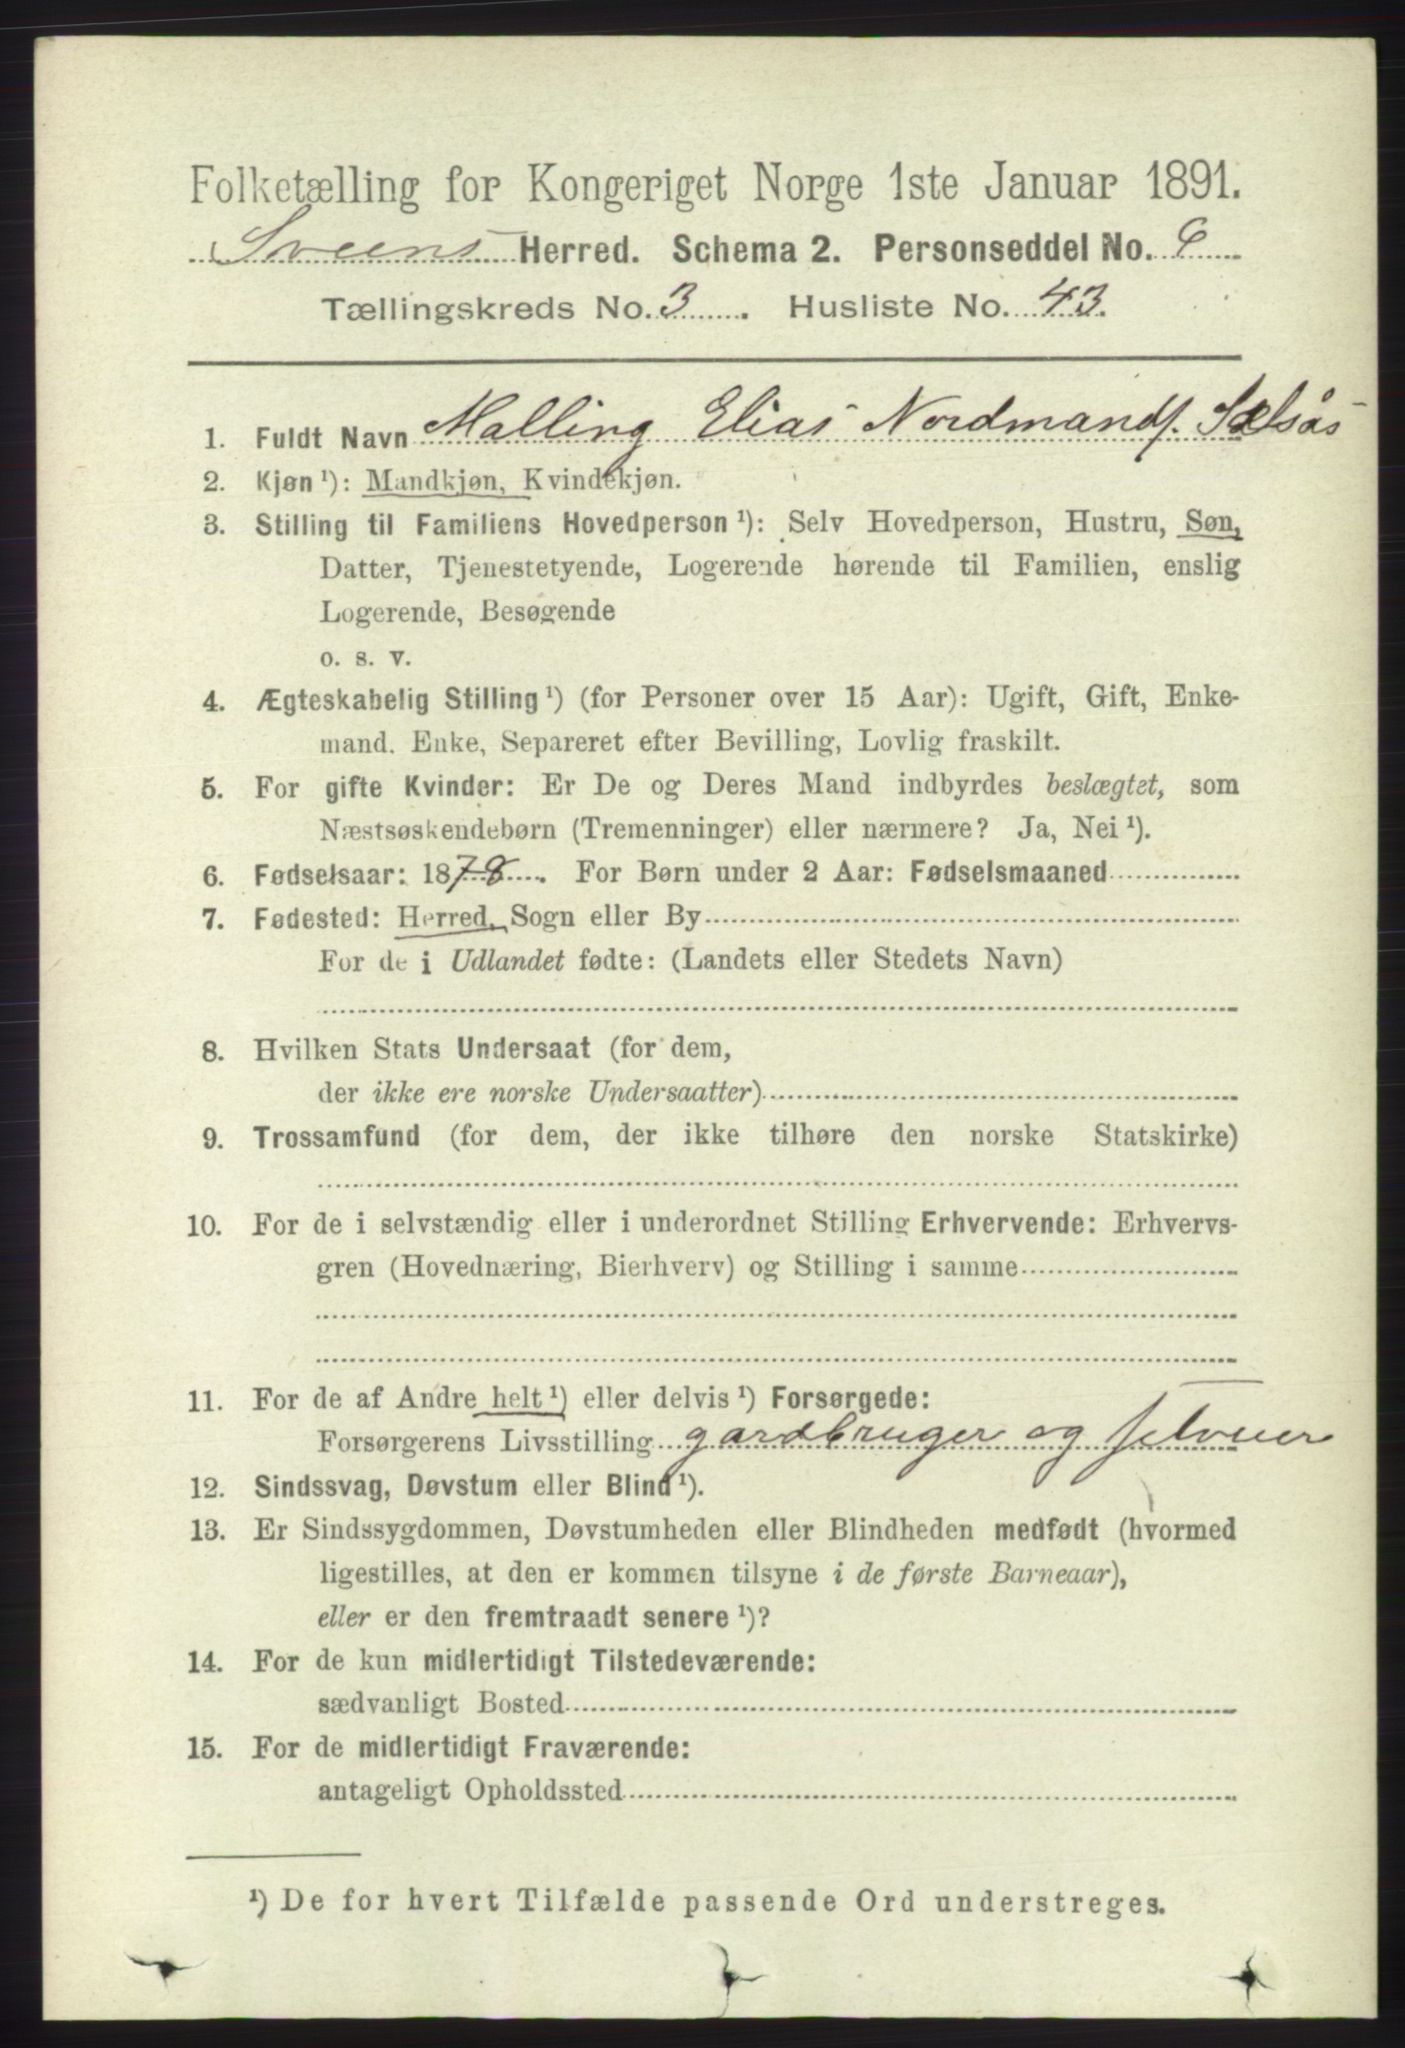 Folketælling for Kongeriget Norge 1ste Januar 1891.
Sveens Herred. Schema 2. Personseddel No. 6
Tællingskreds No. 3. Husliste No. 43.
1. Fuldt Navn Malling Elias Nordmands. Sælsås
2. Kjøn ¹): Mandkjøn, Kvindekjøn.
3. Stilling til Familiens Hovedperson ¹): Selv Hovedperson, Hustru, Søn,
Datter, Tjenestetyende, Logerende hørende til Familien, enslig
Logerende, Besøgende
o. s. v.
4. Ægteskabelig Stilling ¹) (for Personer over 15 Aar): Ugift, Gift, Enke-
mand. Enke, Separeret efter Bevilling, Lovlig fraskilt.
5. For gifte Kvinder: Er De og Deres Mand indbyrdes beslægtet, som
Næstsøskendebørn (Tremenninger) eller nærmere? Ja, Nei ¹).
6. Fødselsaar: 1878. For Børn under 2 Aar: Fødselsmaaned
7. Fødested: Herred, Sogn eller By
For de i Udlandet fødte: (Landets eller Stedets Navn)
8. Hvilken Stats Undersaat (for dem,
der ikke ere norske Undersaatter)
9. Trossamfund (for dem, der ikke tilhøre den norske Statskirke)
10. For de i selvstændig eller i underordnet Stilling Erhvervende: Erhvervs-
gren (Hovednæring, Bierhverv) og Stilling i samme
11. For de af Andre helt ¹) eller delvis ¹) Forsørgede:
Forsørgerens Livsstilling gardbruger og selveier
12. Sindssvag, Døvstum eller Blind ¹).
13. Er Sindssygdommen, Døvstumheden eller Blindheden medfødt (hvormed
ligestilles, at den er kommen tilsyne i de første Barneaar),
eller er den fremtraadt senere ¹)?
14. For de kun midlertidigt Tilstedeværende:
sædvanligt Bosted
15. For de midlertidigt Fraværende:
antageligt Opholdssted
¹) De for hvert Tilfælde passende Ord understreges.